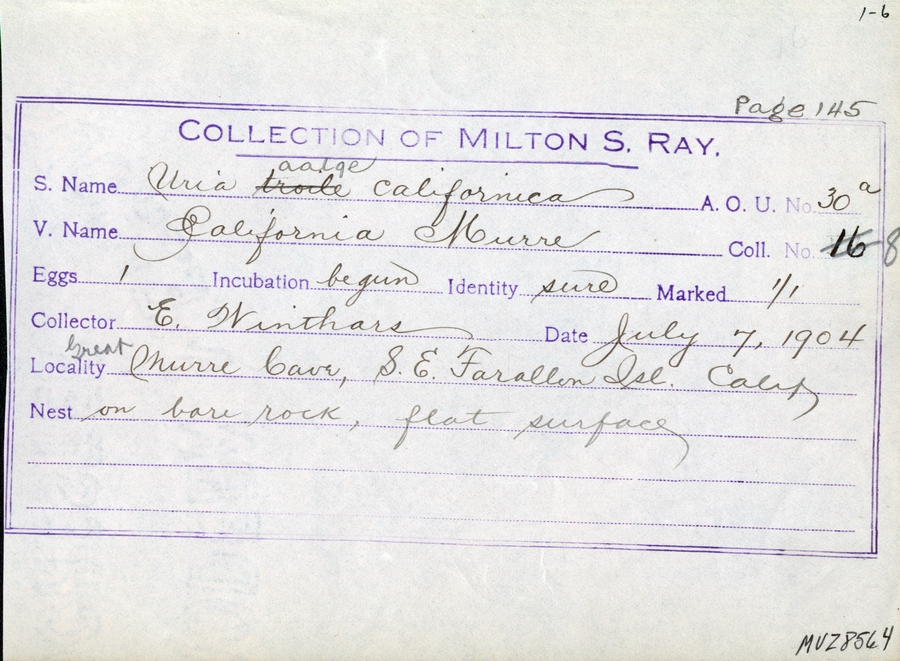 1-6
Page 145
COLLECTION OF MILTON S. RAY.
aalge
S. Name Uria troile californica A. O. U. No. 30a
V. Name California Murre Coll. No. 16 8
Eggs 1 Incubation begun Identity sure Marked 1/1
Collector E. Winthars Date July 7, 1904
Great
Locality Murre Cave, S. E. Farallon Isl. Calif
Nest on bare rock, flat surface
MVZ8564